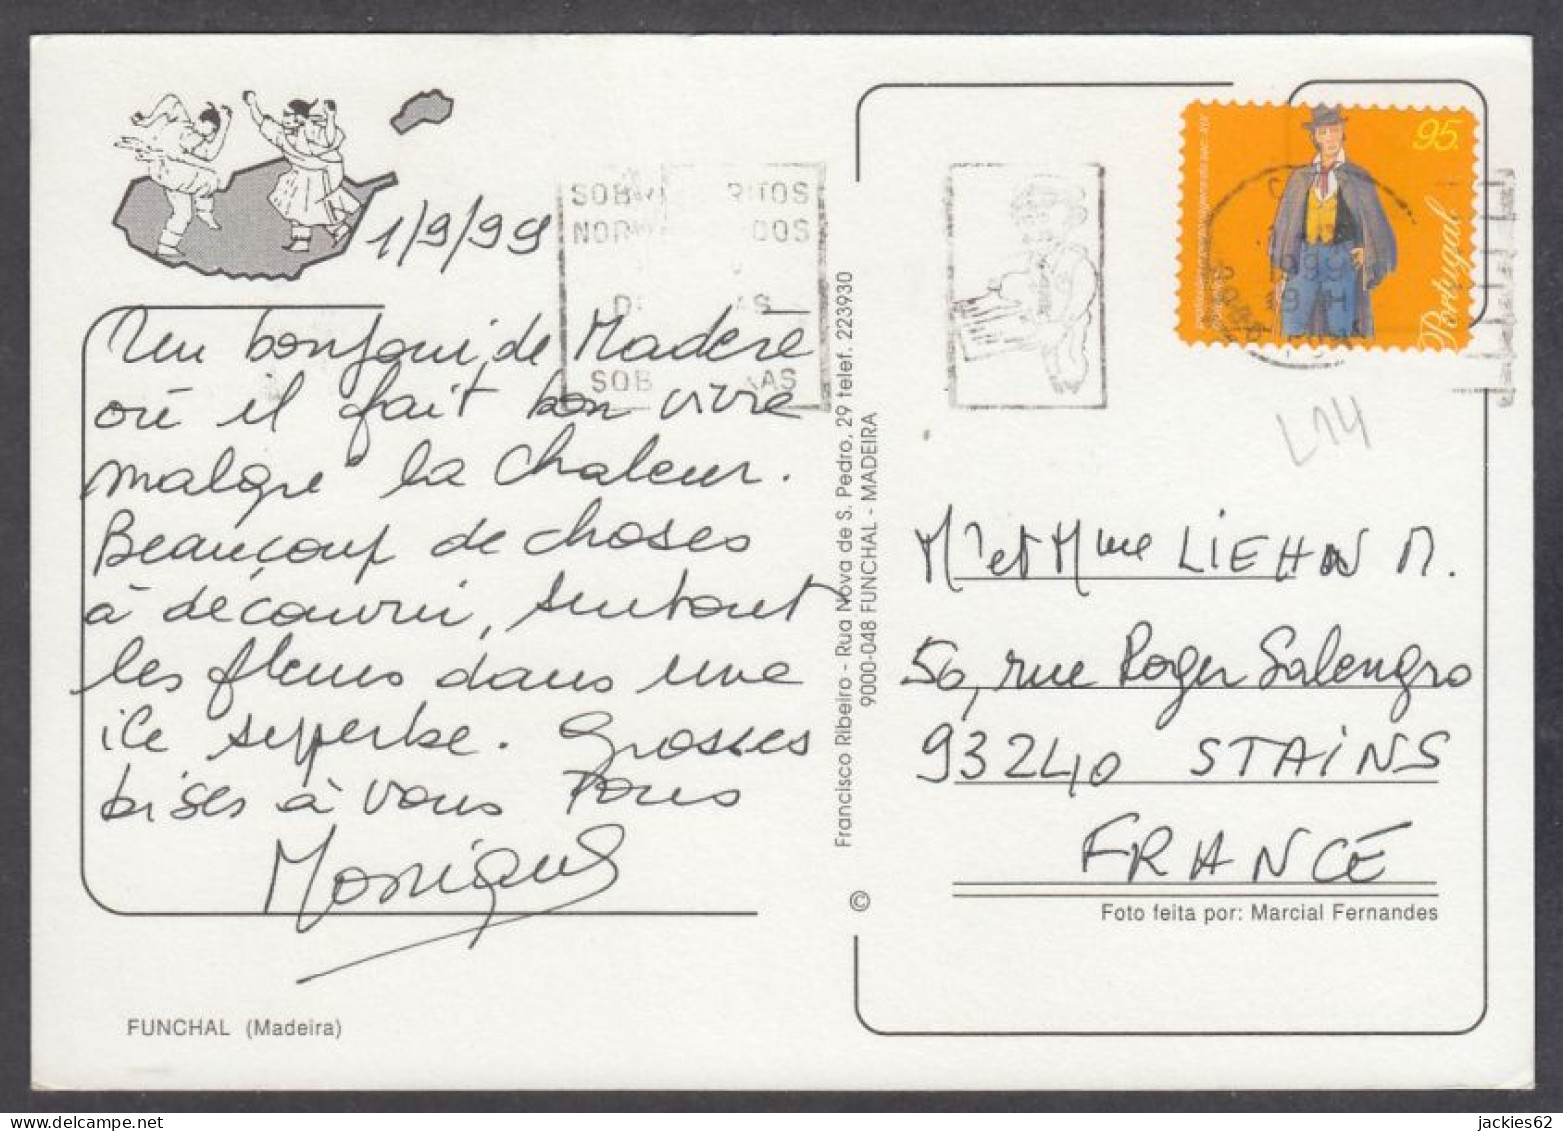 1/9/99
Un bonjour de Madère
où il fait bon vivre
malgré la chaleur.
Beaucoup de choses
à découvrir, surtout
les fleurs dans une
île superbe. Grosses
bises à vous Tous
Monique
FUNCHAL (Madeira)
SOB
NOR
SOB
Francisco Ribeiro - Rua Nova de S. Pedro, 29 telef. 223930
9000-048 FUNCHAL - MADEIRA
©
95.
Portugal
1999
L14
Mr et Mme LIEHN M.
50, rue Roger Salengro
93240 STAINS
FRANCE
Foto feita por: Marcial Fernandes
jackies62